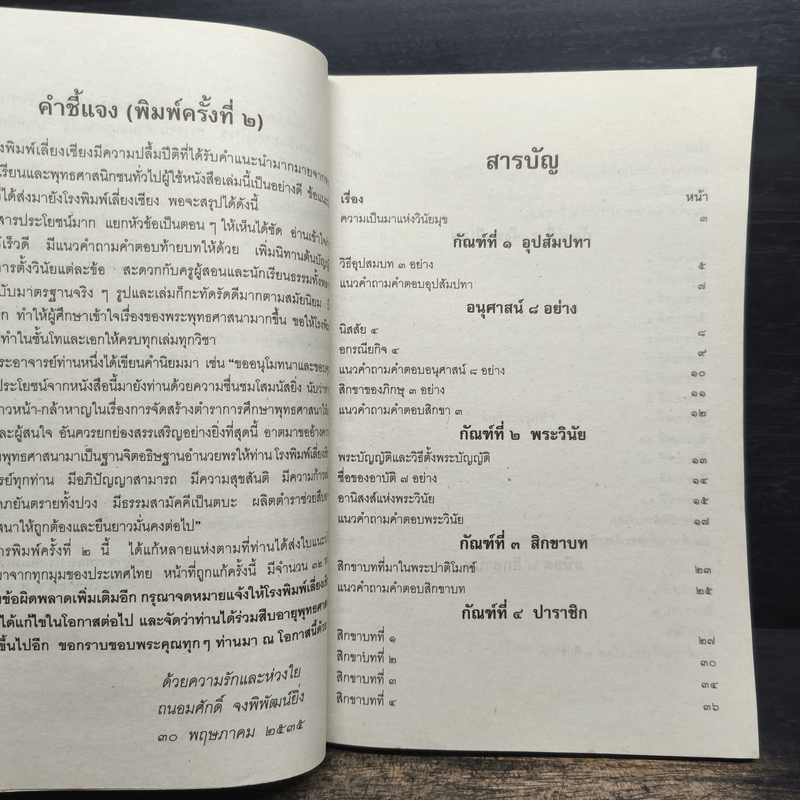 คำชี้แจง (พิมพ์ครั้งที่ ๒)
งพิมพ์เลี่ยงเชียงมีความปลื้มปีติที่ได้รับคำแนะนำมากมายจาก
เรียนและพุทธศาสนิกชนทั่วไปผู้ใช้หนังสือเล่มนี้เป็นอย่างดี
ได้ส่งมายังโรงพิมพ์เลี่ยงเชียง พอจะสรุปได้ดังนี้
สารประโยชน์มาก แยกหัวข้อเป็นตอน ๆ ให้เห็นได้ชัด อ่านเข้าใจ
เร็วดี มีแนวคำถามคำตอบท้ายบทให้ด้วย เพิ่มนิทานต้นบัญญั
ารตั้งวินัยแต่ละข้อ สะดวกกับครูผู้สอนและนักเรียนธรรมทั้ง
บับมาตรฐานจริง ๆ รูปและเล่มก็กะทัดรัดดีมากตามสมัยนิยม
ก ทำให้ผู้ศึกษาเข้าใจเรื่องของพระพุทธศาสนามากขึ้น ขอให้โรงพิม
ทำในชั้นโทและเอกให้ครบทุกเล่มทุกวิชา
ระอาจารย์ท่านหนึ่งได้เขียนคำนิยมมา เช่น “ขออนุโมทนาและขอบคุ
ประโยชน์จากหนังสือนี้มายังท่านด้วยความชื่นชมโสมนัสยิ่ง นับว่า
าวหน้า-กล้าหาญในเรื่องการจัดสร้างตำราการศึกษาพุทธศาสนา
และผู้สนใจ อันควรยกย่องสรรเสริญอย่างยิ่งที่สุดนี้ อาตมาขออ้าง
พุทธศาสนามาเป็นฐานจิตอธิษฐานอำนวยพรให้ท่าน โรงพิมพ์เลี่ยง
รย์ทุกท่าน มีอภิปัญญาสามารถ มีความสุขสันติ มีความก้าว
ภยันตรายทั้งปวง มีธรรมสามัคคีเป็นตบะ ผลิตตำราช่วยสืบ
สนาให้ถูกต้องและยืนยาวมั่นคงต่อไป”
ารพิมพ์ครั้งที่ ๒ นี้ ได้แก้หลายแห่งตามที่ท่านได้ส่งใบแนะนำ
มาจากทุกมุมของประเทศไทย หน้าที่ถูกแก้ครั้งนี้ มีจำนวน ๓๒
ข้อผิดพลาดเพิ่มเติมอีก กรุณาจดหมายแจ้งให้โรงพิมพ์เลี่ยง
ได้แก้ไขในโอกาสต่อไป และจัดว่าท่านได้ร่วมสืบอายุพุทธศา
ขึ้นไปอีก ขอกราบขอบพระคุณทุก ๆ ท่านมา ณ โอกาสนี้ด้วย
ด้วยความรักและห่วงใย
ถนอมศักดิ์ จงพิพัฒน์ยิ่ง
๓๐ พฤษภาคม ๒๕๓๕
สารบัญ
เรื่อง หน้า
ความเป็นมาแห่งวินัยมุข ๓
กัณฑ์ที่ ๑ อุปสัมปทา
วิธีอุปสมบท ๓ อย่าง ๕
แนวคำถามคำตอบอุปสัมปทา ๗
อนุศาสน์ ๘ อย่าง
นิสสัย ๔ ๘
อกรณียกิจ ๔ ๙
แนวคำถามคำตอบอนุศาสน์ ๘ อย่าง ๑๐
สิกขาของภิกษุ ๓ อย่าง ๑๑
แนวคำถามคำตอบสิกขา ๓ ๑๒
กัณฑ์ที่ ๒ พระวินัย
พระบัญญัติและวิธีตั้งพระบัญญัติ ๑๓
ชื่อของอาบัติ ๗ อย่าง ๑๔
อานิสงส์แห่งพระวินัย ๑๕
แนวคำถามคำตอบพระวินัย ๑๗
กัณฑ์ที่ ๓ สิกขาบท
สิกขาบทที่มาในพระปาติโมกข์ ๒๓
แนวคำถามคำตอบสิกขาบท ๒๕
กัณฑ์ที่ ๔ ปาราชิก
สิกขาบทที่ ๑ ๒๗
สิกขาบทที่ ๒ ๓๐
สิกขาบทที่ ๓ ๓๔
สิกขาบทที่ ๔ ๓๖